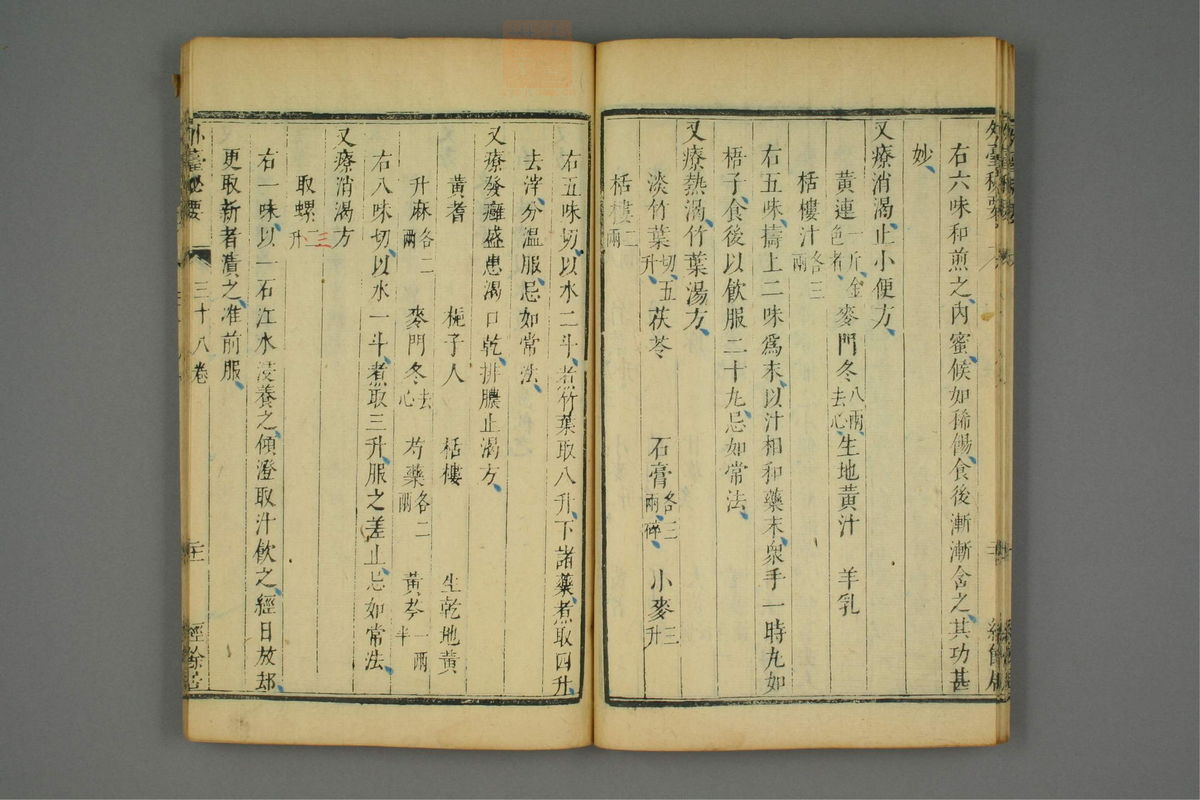 右六味和煎之内蜜候如稀餳食後漸漸含之其功甚
妙
又療消渴止小便方
黃連一斤金色者 麥門冬八兩去心 生地黃汁 羊乳
栝樓汁各三兩
右五味擣上二味爲末以汁相和藥末衆手一時丸如
梧子食後以飲服二十丸忌如常法
又療熱渴竹葉湯方
淡竹葉切五升 茯苓 石膏各三兩碎 小麥三升
栝樓二兩
右五味切以水二斗煮竹葉取八升下諸藥煮取四升
去滓分溫服忌如常法
又療發癰盛患渴口乾排膿止渴方
黃耆 梔子人 栝樓 生乾地黃
升麻各二兩 麥門冬去心 芍藥各二兩 黃芩一兩半
右八味切以水一斗煮取三升服之差止忌如常法
又療消渴方
取螺二升
三
右一味以一石江水浸養之傾澄取汁飲之經日放却
更取新者漬之准前服
外臺秘要 三十八卷 二十二 經餘居